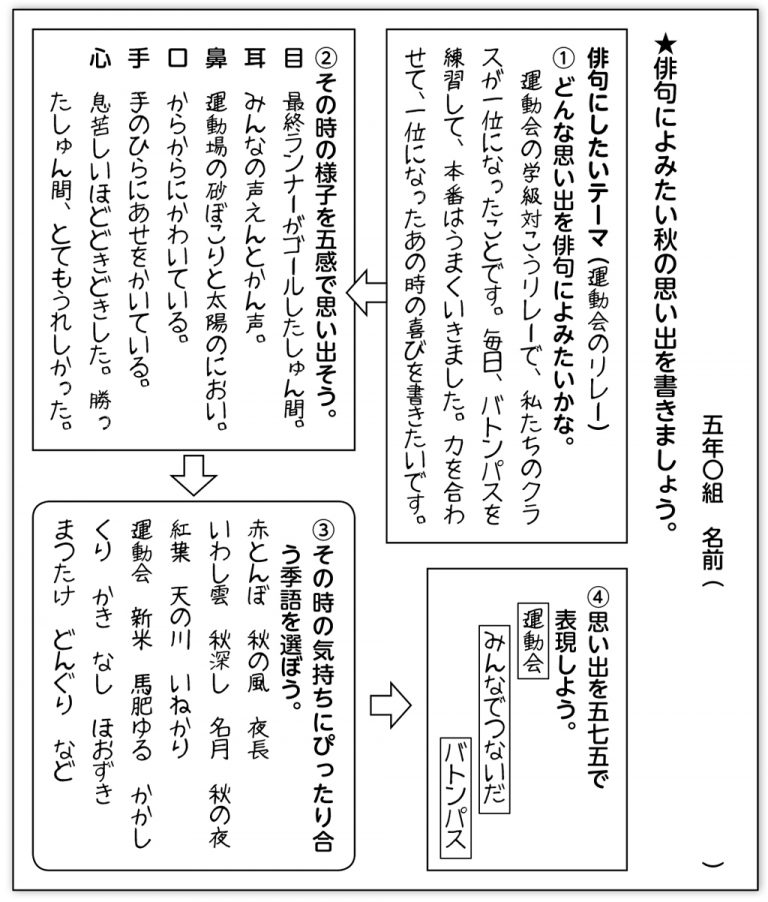 ★俳句によみたい秋の思い出を書きましょう。
五年〇組　名前（　　　　　　　　）
俳句にしたいテーマ（運動会のリレー）
①どんな思い出を俳句によみたいかな。
運動会の学級対こうリレーで、私たちのクラ
スが一位になったことです。毎日、バトンパスを
練習して、本番はうまくいきました。力を合わ
せて、一位になったあの時の喜びを書きたいです。
②その時の様子を五感で思い出そう。
目　最終ランナーがゴールしたしゅん間。
耳　みんなの声えんとかん声。
鼻　運動場の砂ぼこりと太陽のにおい。
口　からからにかわいている。
手　手のひらにあせをかいている。
心　息苦しいほどどきどきした。勝っ
たしゅん間、とてもうれしかった。
③その時の気持ちにぴったり合
う季語を選ぼう。
赤とんぼ　秋の風　夜長
いわし雲　秋深し　名月　秋の夜
紅葉　天の川　いねかり
運動会　新米　馬肥ゆる　かかし
くり　かき　なし　ほおずき
まつたけ　どんぐり　など
④思い出を五七五で
表現しよう。
運動会
みんなでつないだ
バトンパス